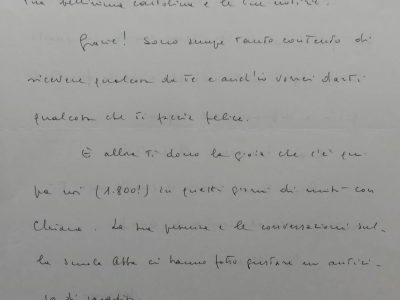 tua bellissima cartolina e le tue notizie.
Grazie! Sono sempre tanto contento di
ricevere qualcosa da te e anch'io vorrei darti
qualcosa che ti faccia felice.
E allora ti dono la gioia che c'è qui
fra noi (1.800!) in questi giorni di unità con
Chiara. La sua presenza e le conversazioni sul-
la scuola Abba ci hanno fatto gustare un antici-
po di paradiso